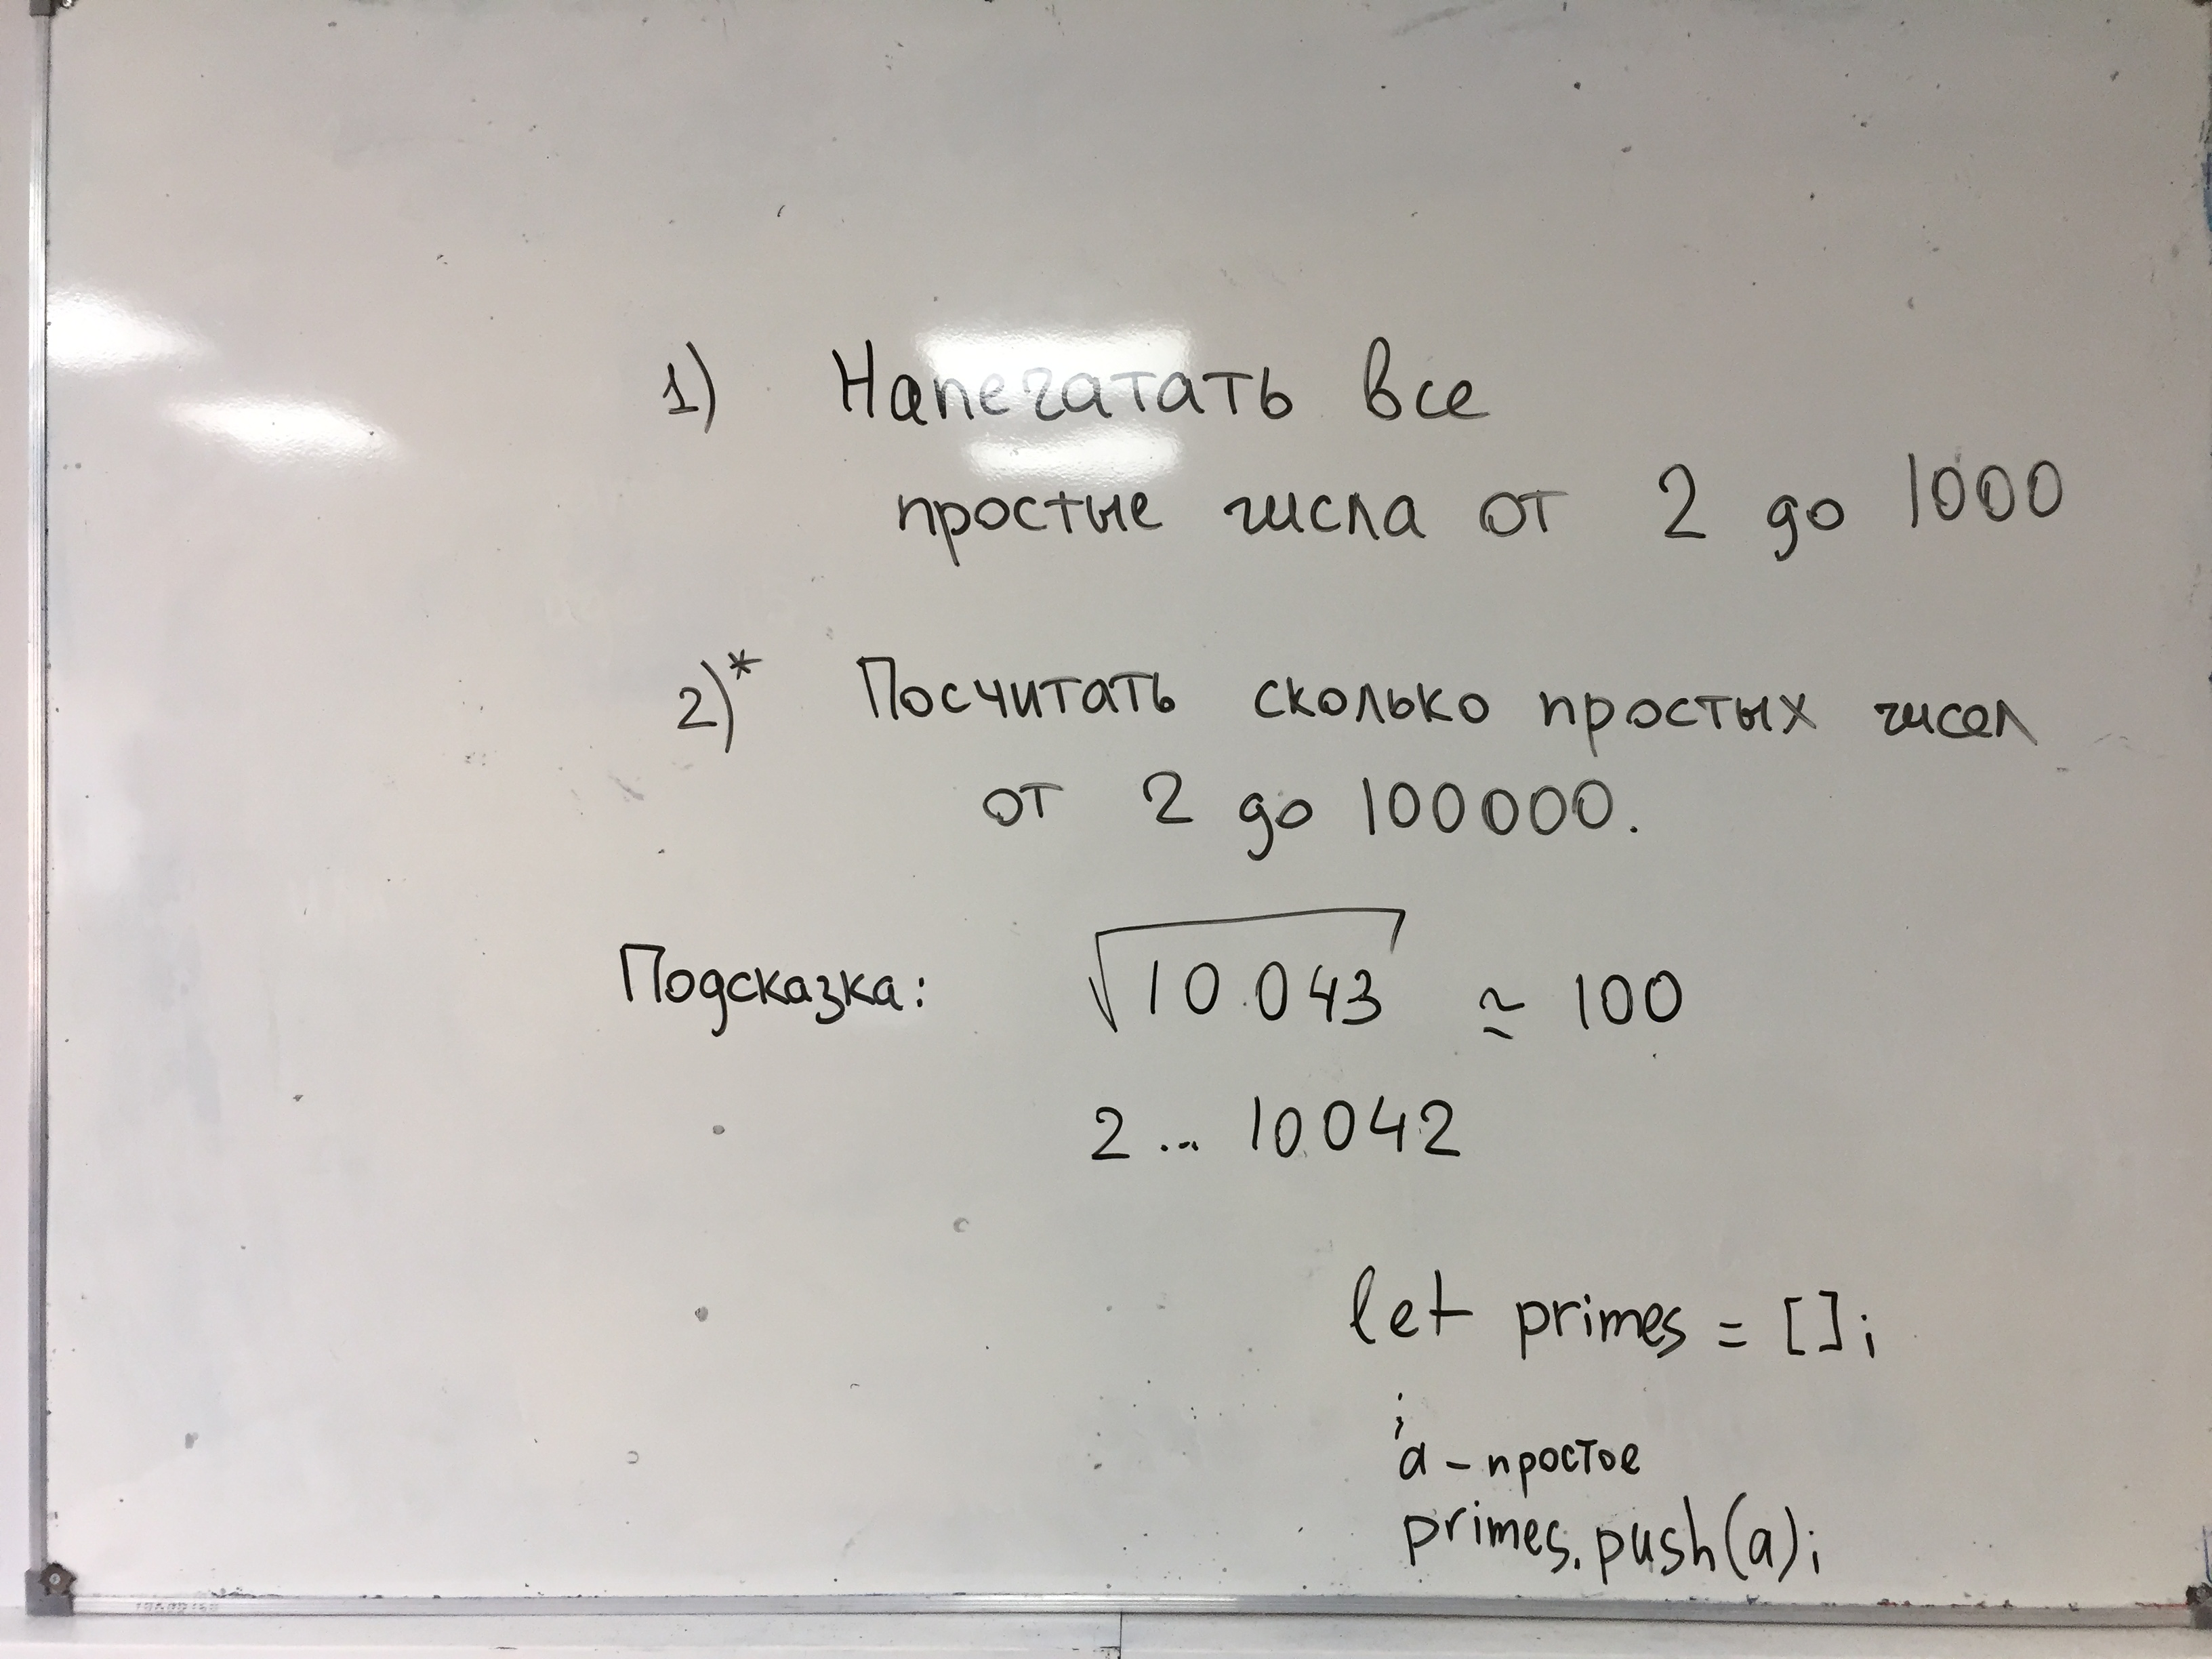 1) Напечатать все
простые числа от 2 до 1000
2)* Посчитать сколько простых чисел
от 2 до 100000.
Подсказка: √10.043 ≃ 100
2 ... 10.042
let primes = [];
a - простое
primes.push(a);